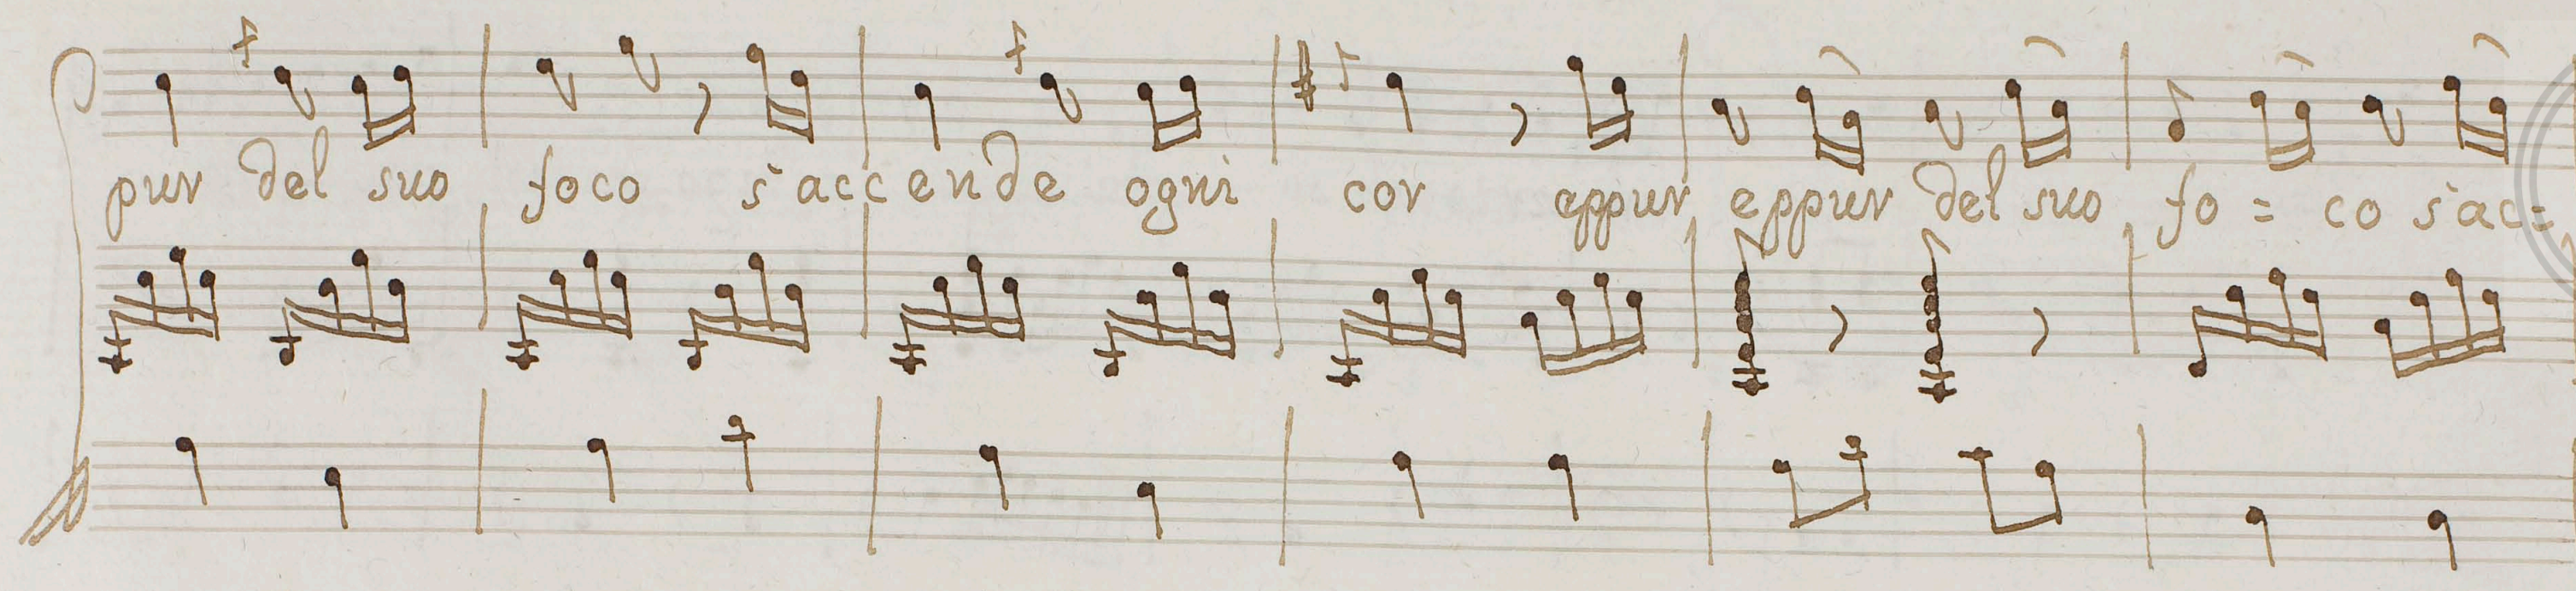 pur del suo foco s'accende ogni cor eppur eppur del suo fo = co s'ac=